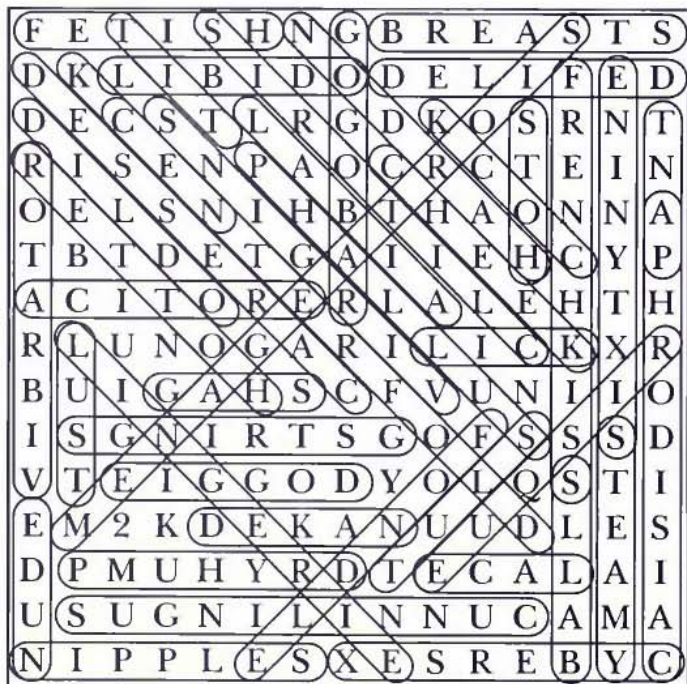 F E T I S H N G B R E A S T S
D K L I B I D O D E L I F E D
D E C S T L R G D K O S R N T
R I S E N P A O C R C T E I N
O E L S N I H B T H A O N N A
T B T D E T G A I I E H C Y P
A C I T O R E R L A L E H T H
R L U N O G A R I L I C K X R
B U I G A H S C F V U N I I O
I S G N I R T S G O F S S S D
V T E I G G O D Y O L Q S T I
E M 2 K D E K A N U U D L E S
D P M U H Y R D T E C A L A I
U S U G N I L I N N U C A M A
N I P P L E S X E S R E B Y C